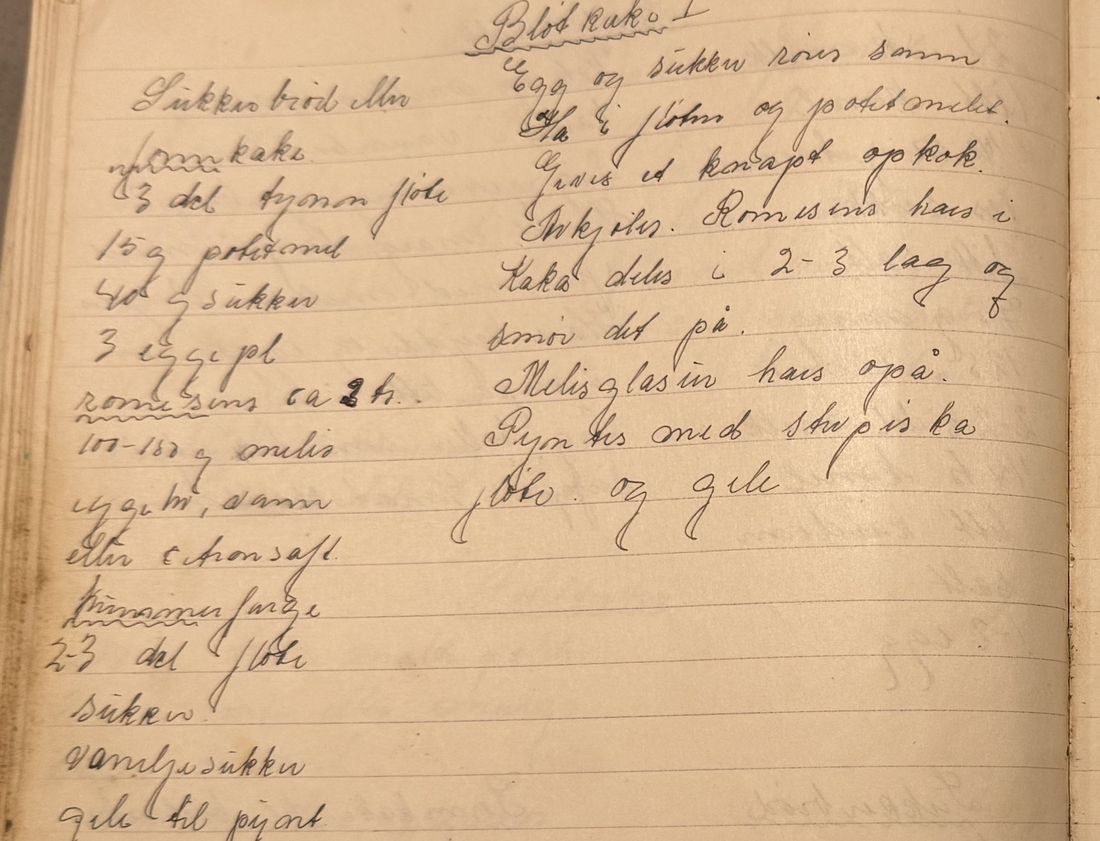 Bløtkake I
Sukkerbrød eller
formkake.
3 del tynn fløte
15 g potetmel
40 g sukker
3 eggepl
romesens ca 2 ts..
100-150 g melis
eggehv, vann
eller citronsaft.
kunmmerfarge
2-3 del fløte
sukker.
vaneljesukker
gele til pynt.
Egg og sukker røres samm
Ha i fløten og potetmelet.
Gives et knapt opkok.
Avkjøles. Romesens haes i
Kaka deles i 2-3 lag og
smør det på.
Melisglasur haes opå.
Pyntes med stivpiska
fløte. og gele